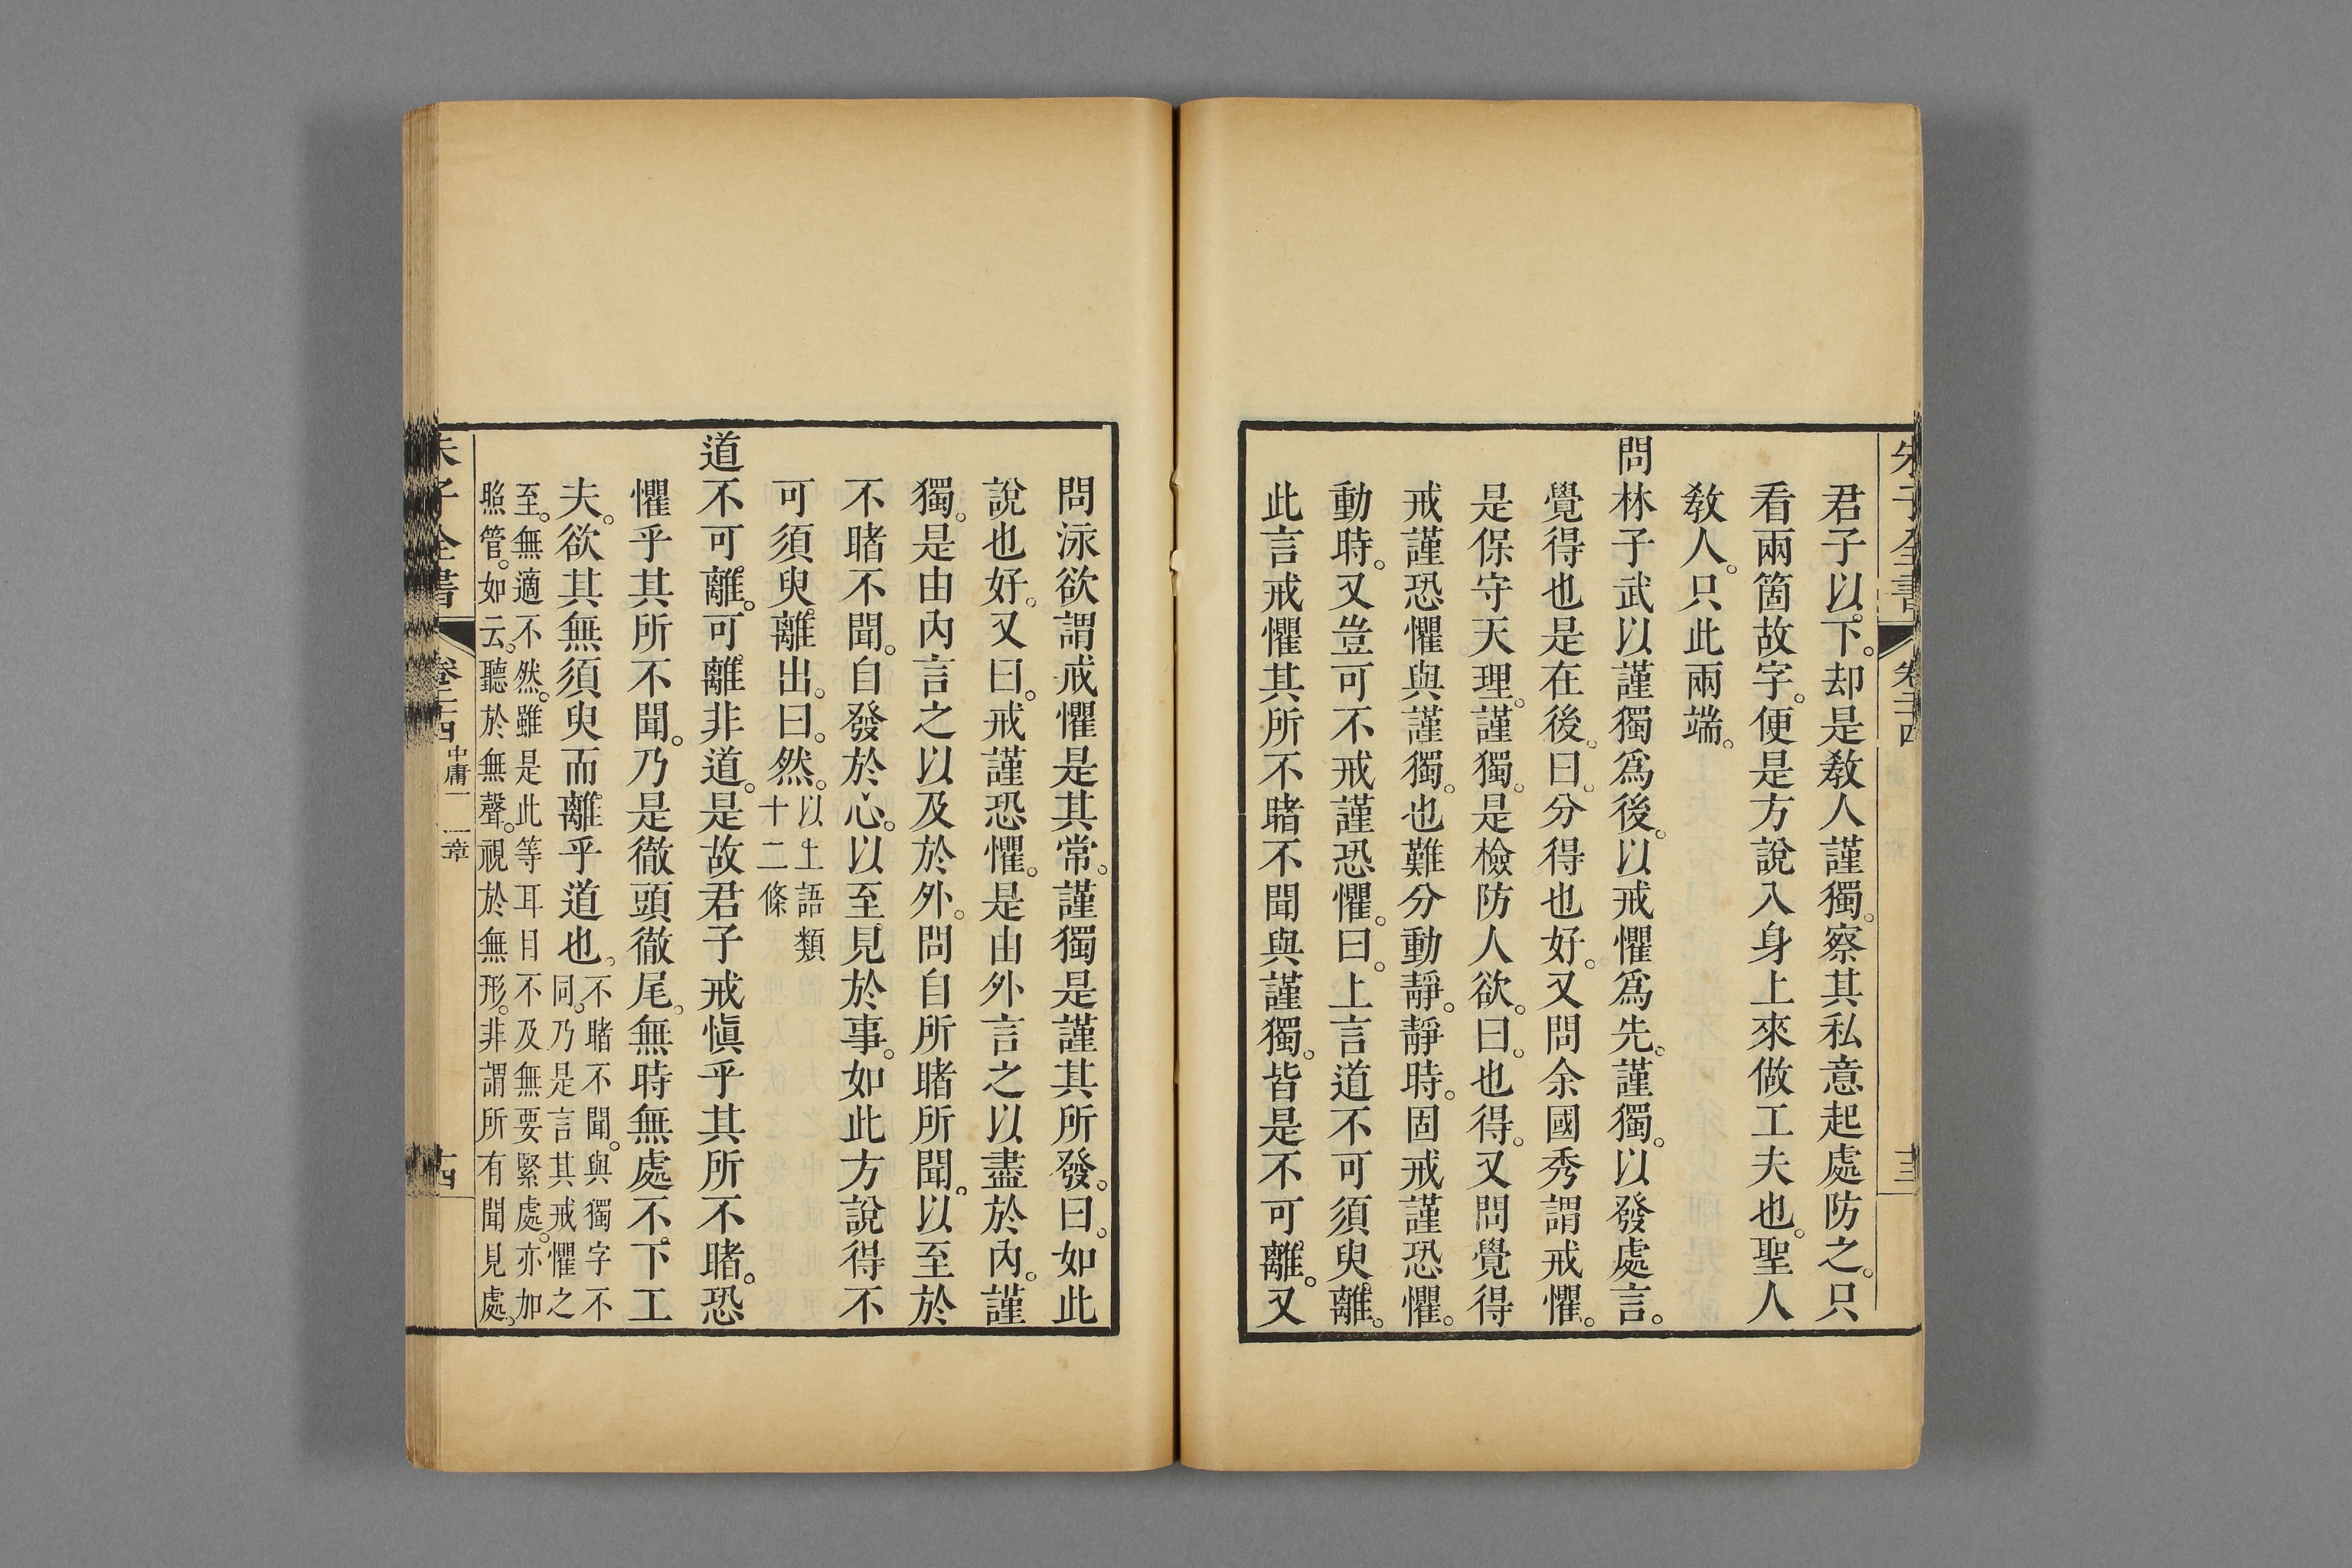 朱子全書 卷二十四 十三
君子以下。却是敎人謹獨。察其私意起處防之。只
看兩箇故字。便是方說入身上來做工夫也。聖人
敎人。只此兩端。
問林子武以謹獨爲後。以戒懼爲先。謹獨。以發處言。
覺得也是在後。曰。分得也好。又問余國秀謂戒懼。
是保守天理。謹獨。是檢防人欲。曰。也得。又問覺得
戒謹恐懼與謹獨。也難分動靜。靜時。固戒謹恐懼。
動時。又豈可不戒謹恐懼。曰。上言道不可須臾離。
此言戒懼其所不睹不聞與謹獨。皆是不可離。又
問泳欲謂戒懼是其常。謹獨是謹其所發。曰。如此
說也好。又曰。戒謹恐懼。是由外言之以盡於內。謹
獨。是由內言之以及於外。問自所睹所聞。以至於
不睹不聞。自發於心。以至見於事。如此方說得不
可須臾離出。曰。然。以上語類
十二條
道不可離。可離非道。是故君子戒愼乎其所不睹。恐
懼乎其所不聞。乃是徹頭徹尾。無時無處不下工
夫。欲其無須臾而離乎道也。不睹不聞。與獨字不
同。乃是言其戒懼之
至。無適不然。雖是此等耳目不及無要緊處。亦加
照管。如云。聽於無聲。視於無形。非謂所有聞見處。
朱子全書 卷二十四 中庸一 一章 十四